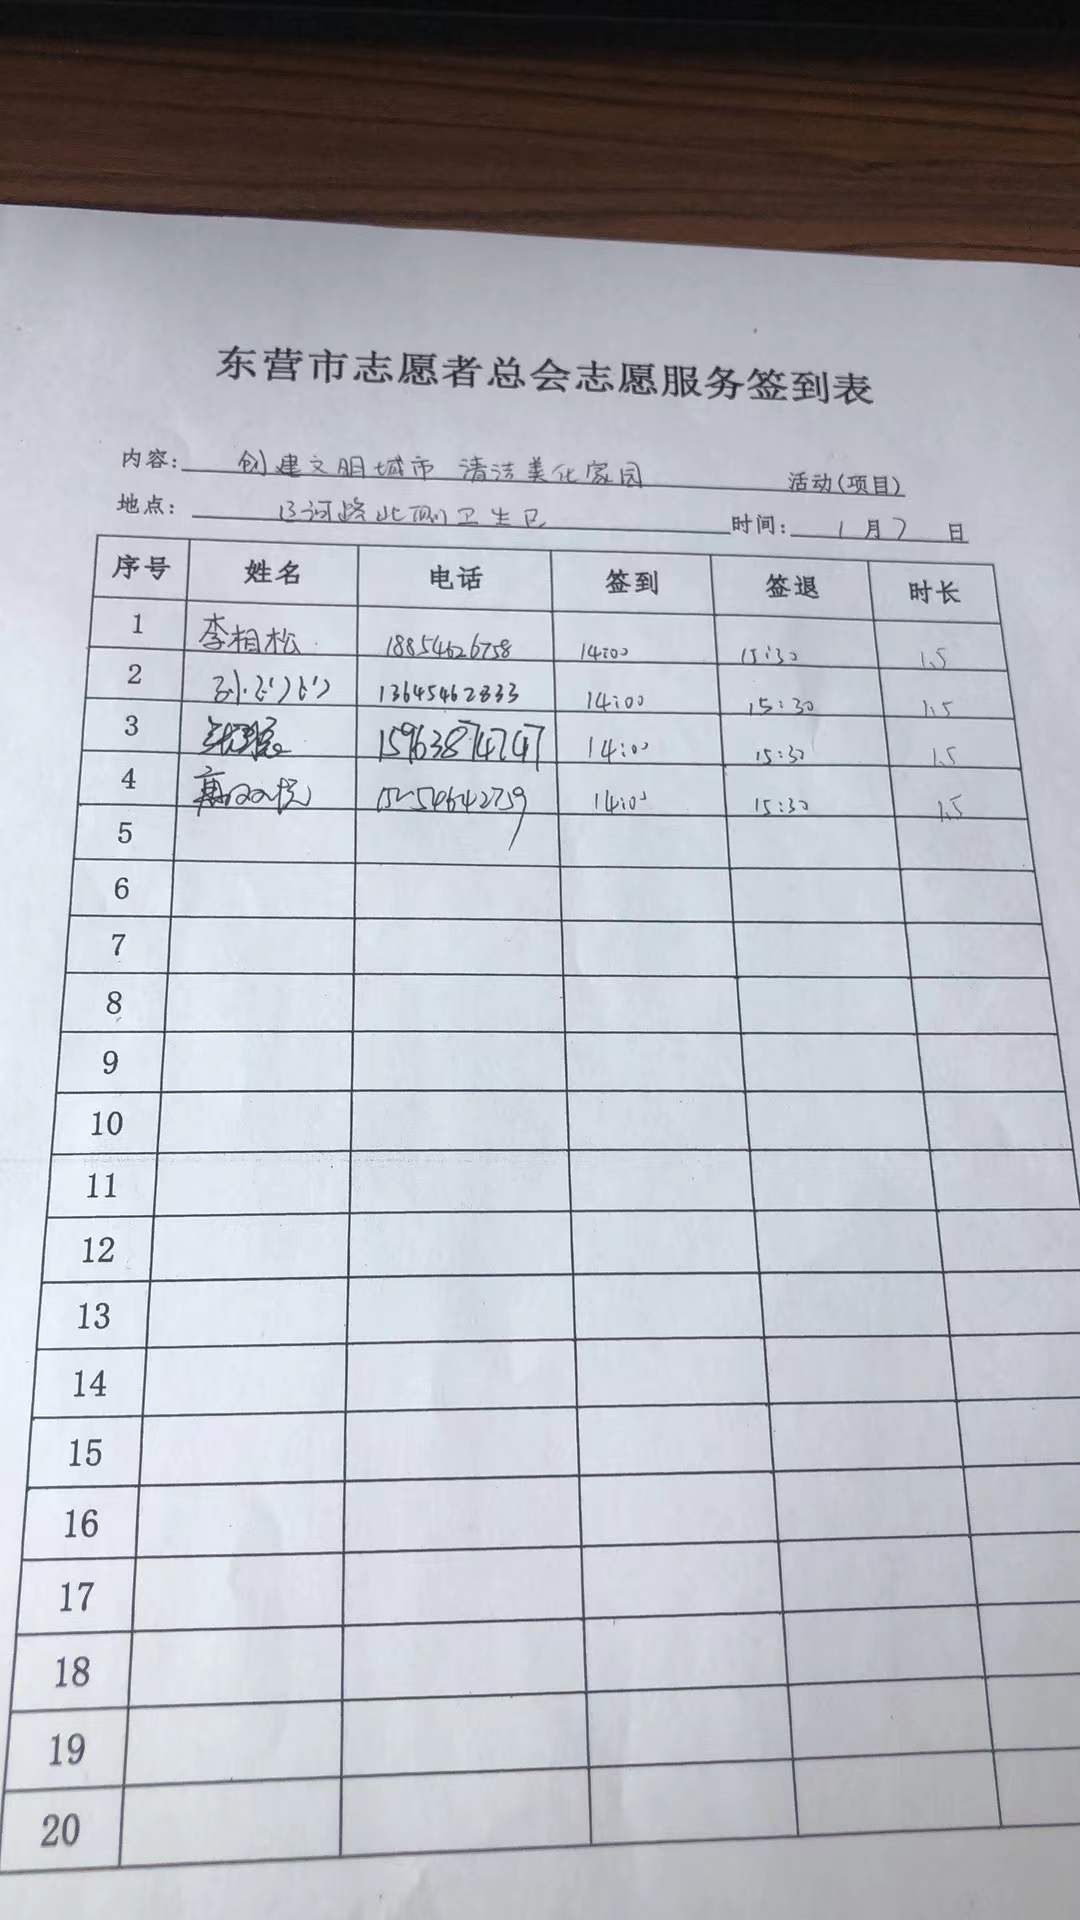 东营市志愿者总会志愿服务签到表
内容: 创建文明城市 清洁美化家园 活动(项目)
地点: 辽河路北侧卫生区 时间: 1月7日
序号 姓名 电话 签到 签退 时长
1 李相松 18854626758 14:00 15:30 1.5
2 孙 13645462833 14:00 15:30 1.5
3 15963874747 14:00 15:30 1.5
4 15254642759 14:00 15:30 1.5
5
6
7
8
9
10
11
12
13
14
15
16
17
18
19
20